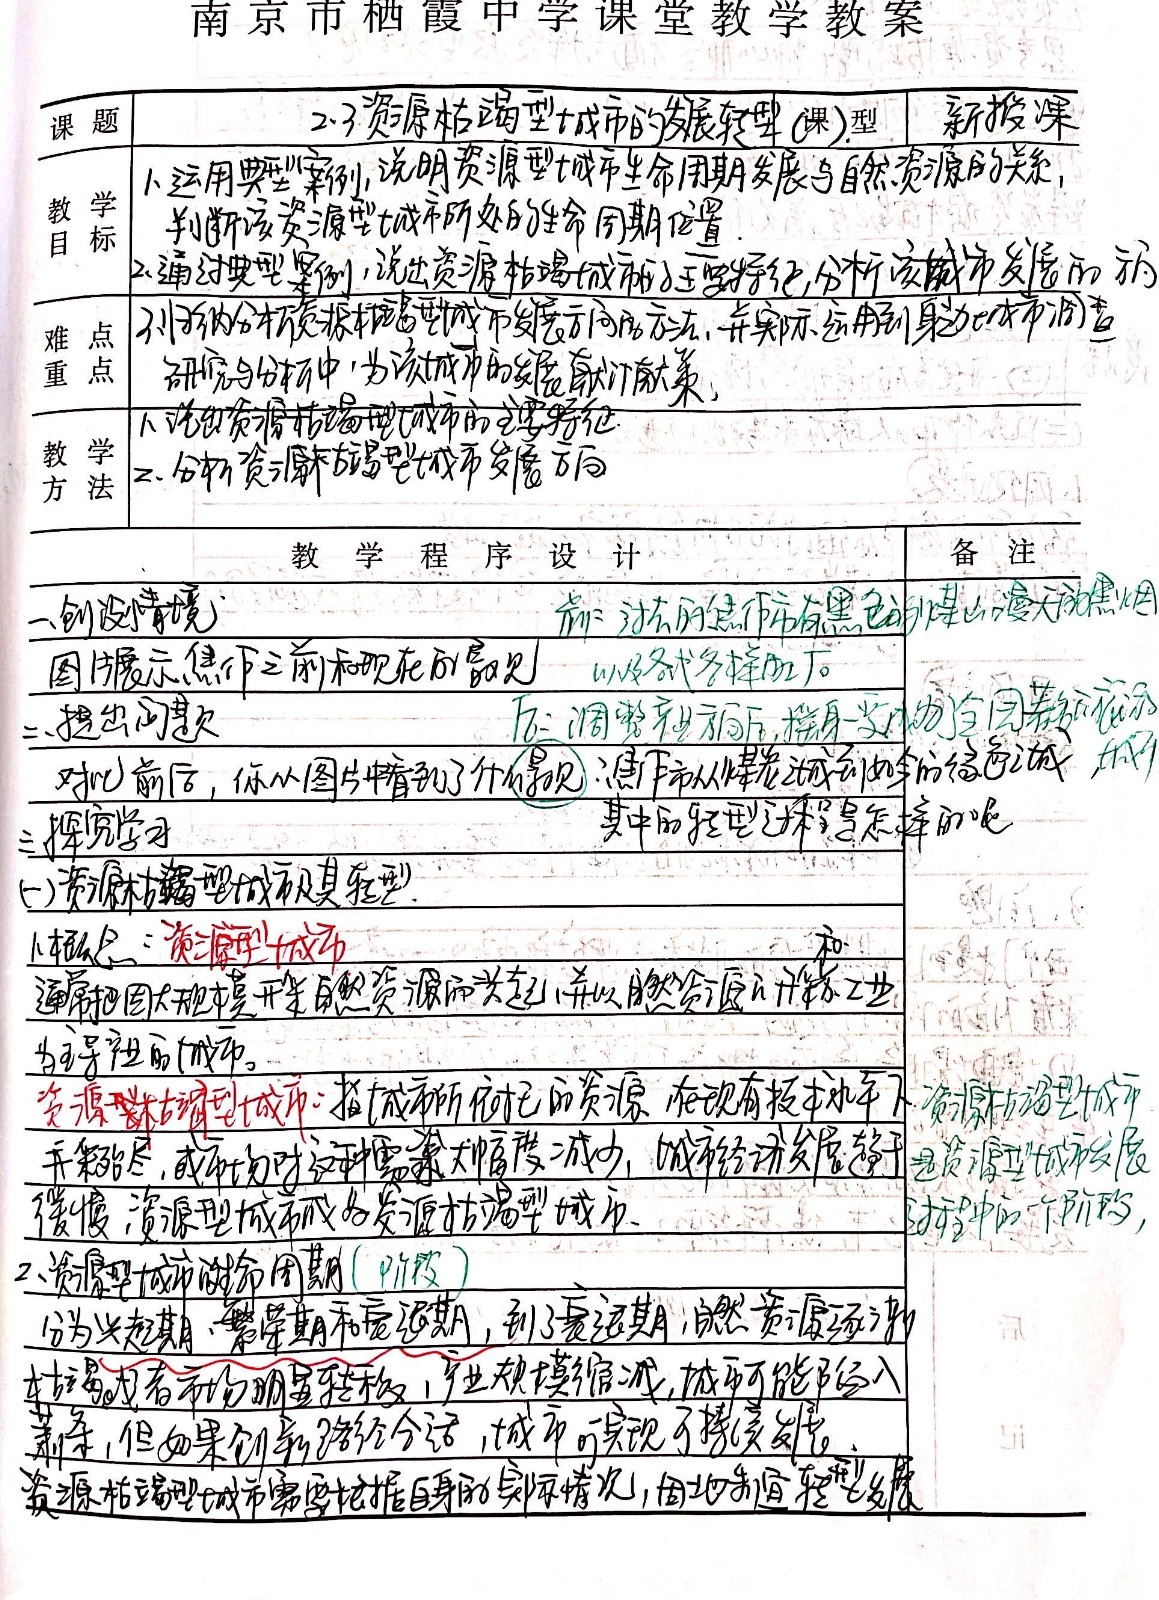 南京市栖霞中学课堂教学教案
课题 2.3资源枯竭型城市的发展转型 (课)型 新授课
教学目标
1、运用典型案例,说明资源型城市生命周期发展与自然资源的关系,
判断该资源型城市所处的生命周期位置.
2、通过典型案例,说出资源枯竭城市的主要特征,分析该城市发展的方向
难点重点
3、归纳分析资源枯竭型城市发展方向的方法,并实际运用到身边城市调查
研究与分析中,为该城市的发展献计献策,
教学方法
1、说出资源枯竭型城市的主要特征.
2、分析资源枯竭型城市发展方向
教学程序设计 备注
一、创设情境 前:过去的焦作市有黑色的煤山漫天的黑烟
图片展示焦作之前和现在的景观 以及各式各样的工厂。
二、提出问题 后:调整产业方向后,摇身一变成为了全国著名旅游城市
对比前后,你从图片中看到了什么景观 :焦作市从煤炭之城到如今的绿色之城
其中的转型过程是怎样的呢
三、探究学习
(一)资源枯竭型城市及其转型.
1、概念:资源型城市
通常把因大规模开采自然资源而兴起,并以自然资源的开采和工业
为主导产业的城市。
资源枯竭型城市:指城市所依托的资源,在现有技术水平下
开采殆尽,或市场对这种需求大幅度减少,城市经济发展趋于
缓慢,资源型城市成为资源枯竭型城市.
资源枯竭型城市
是资源型城市发展
过程中的一个阶段,
2、资源型城市的生命周期(阶段)
分为兴起期、繁荣期和衰退期,到了衰退期,自然资源逐渐
枯竭或者市场明显转移,产业规模缩减,城市可能陷入
萧条,但如果创新路径合适,城市可实现可持续发展.
资源枯竭型城市需要根据自身的实际情况,因地制宜转型发展